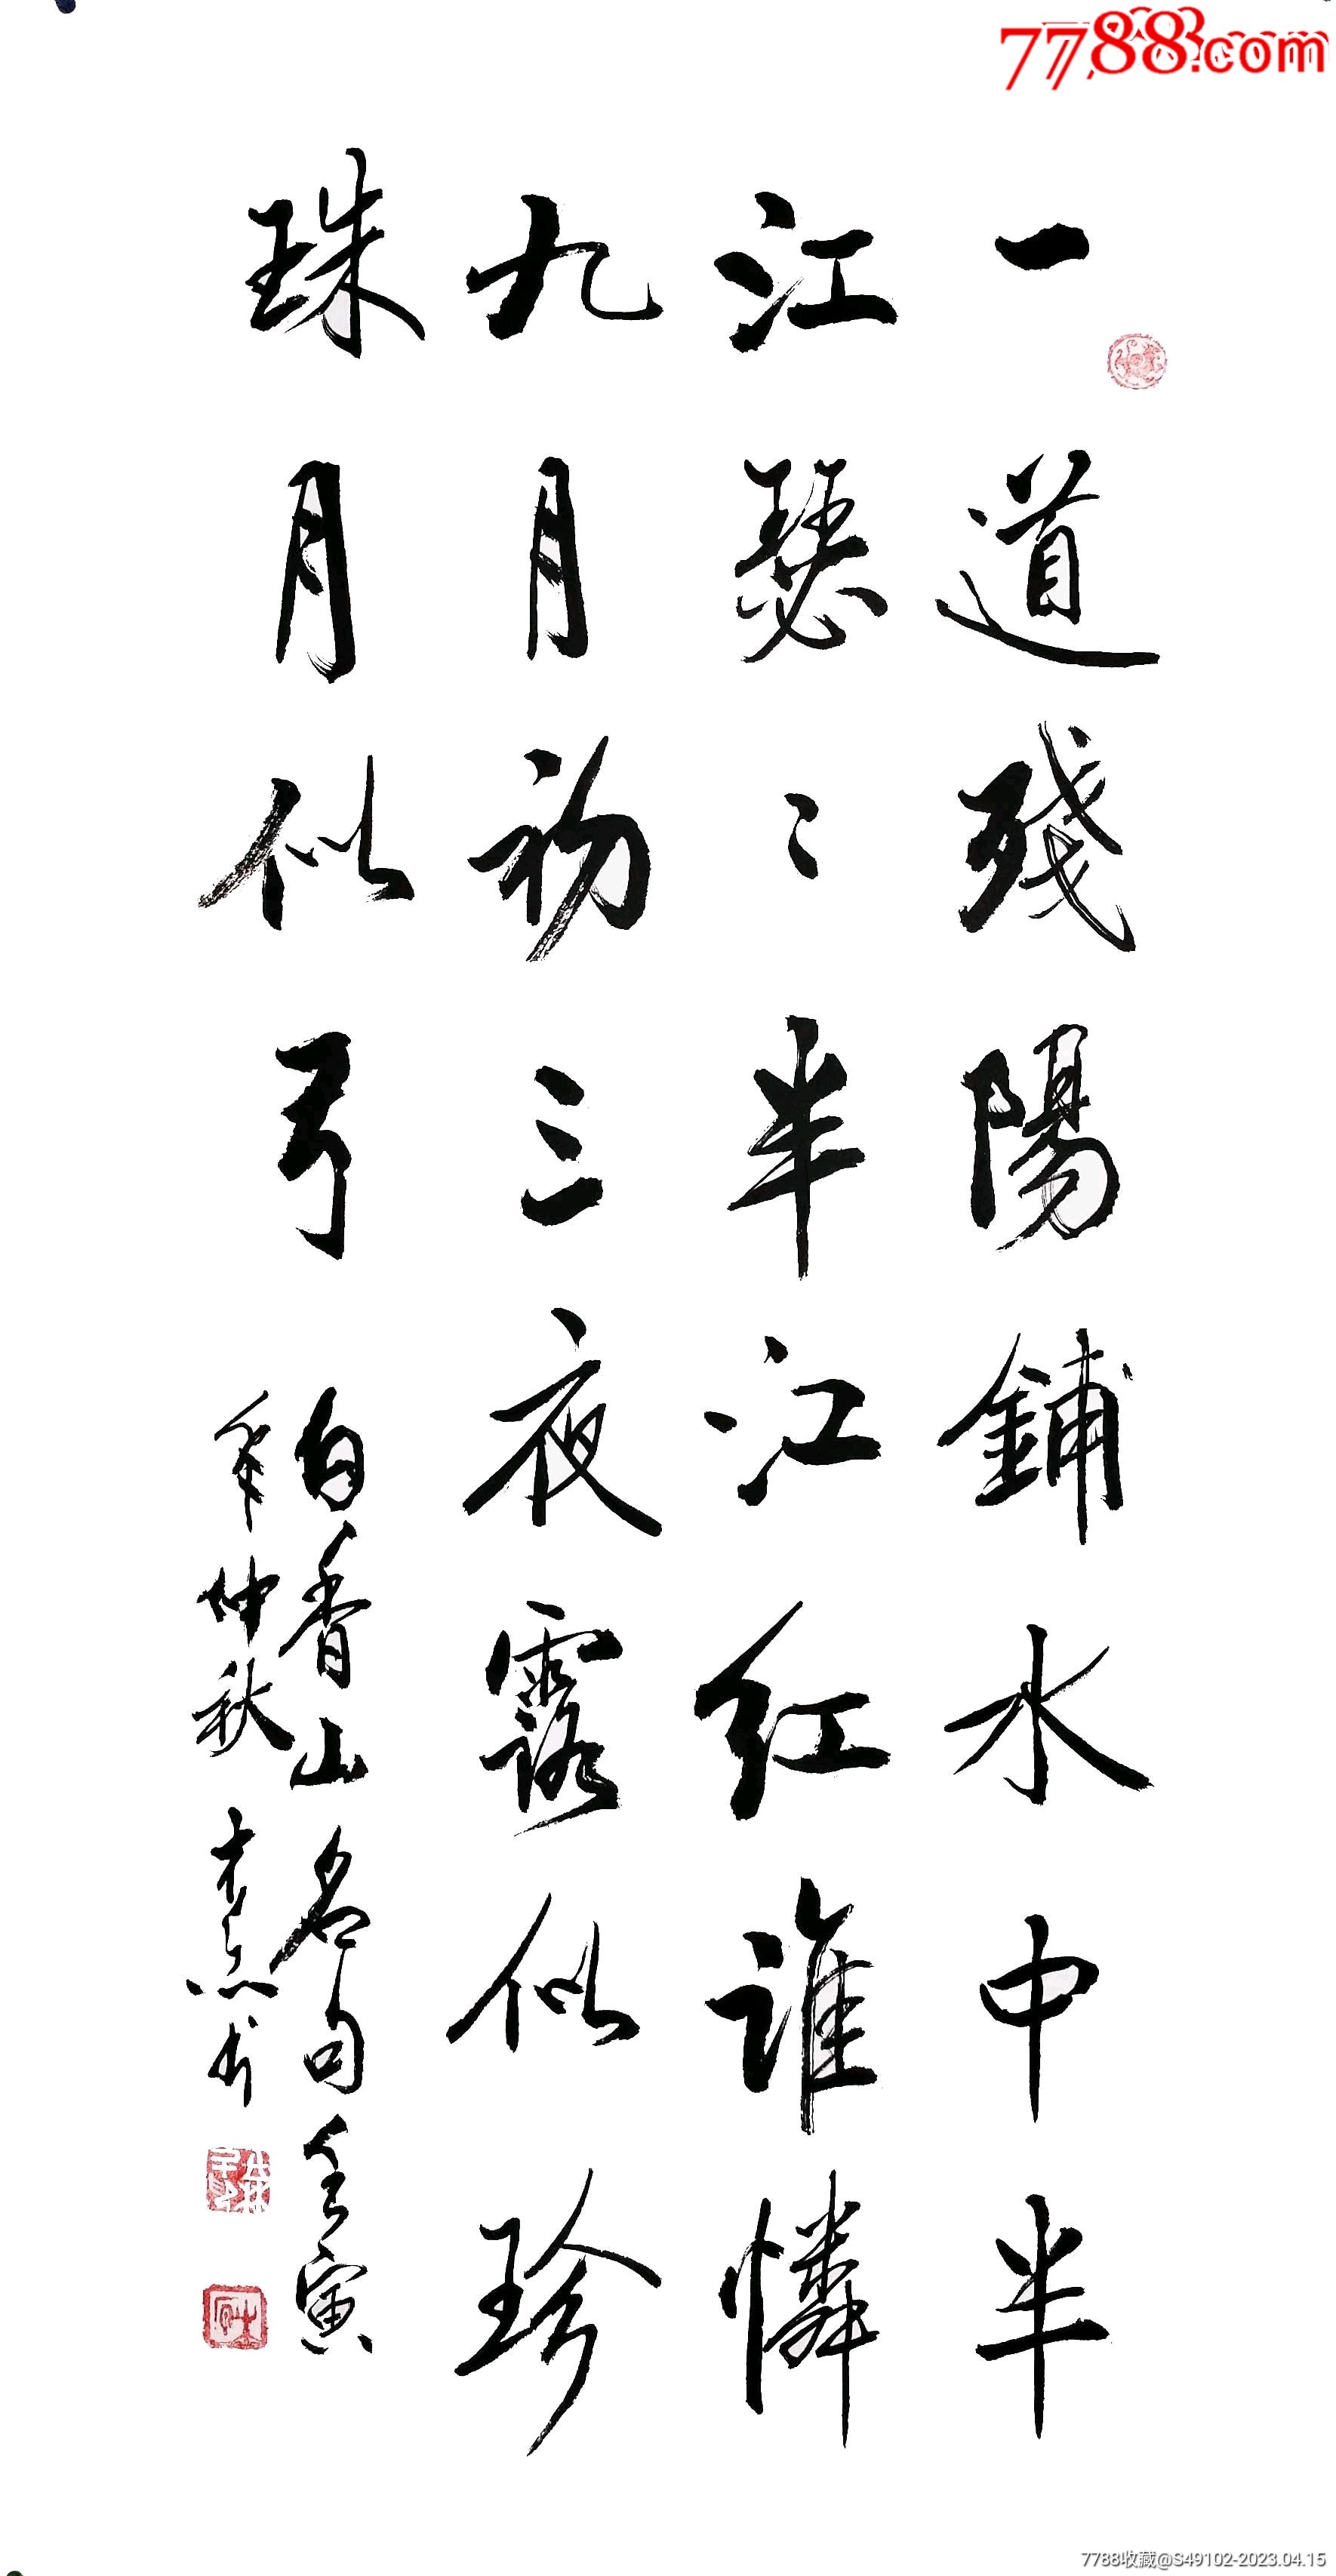 7788.com
一道殘陽鋪水中半
江瑟〻半江紅誰憐
九月初三夜露似珍
珠月似弓
白香山名句壬寅
年仲秋
7788收藏@S49102-2023.04.15